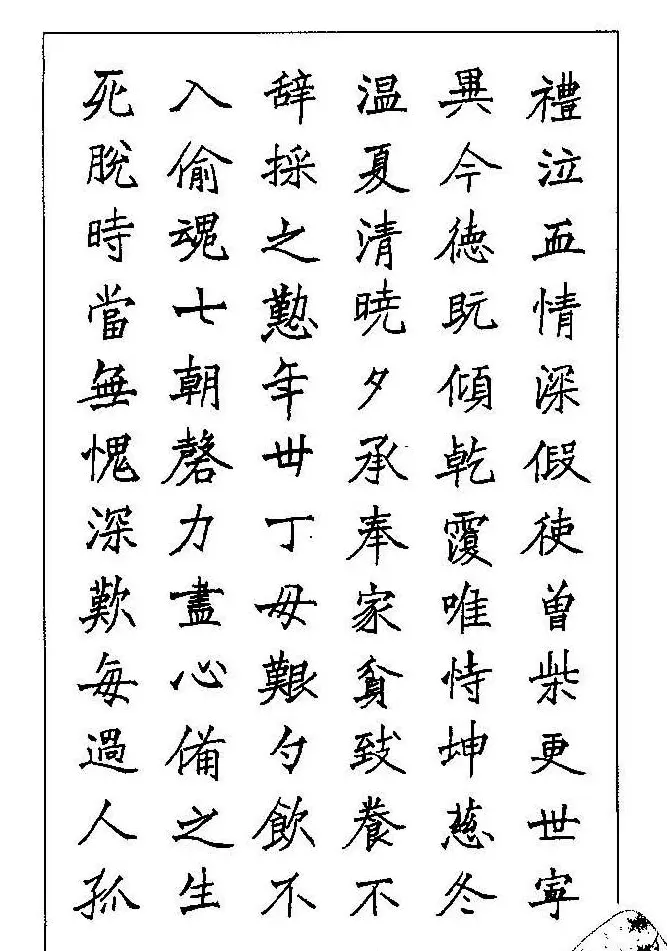 禮泣血情深假使曾柴更世寧
異今德既傾乾覆唯恃坤慈冬
温夏清曉夕承奉家貧致養不
辭採之懃年世丁母艱勺飲不
入偷魂七朝磬力盡心備之生
死脫時當無愧深歎每過人孤